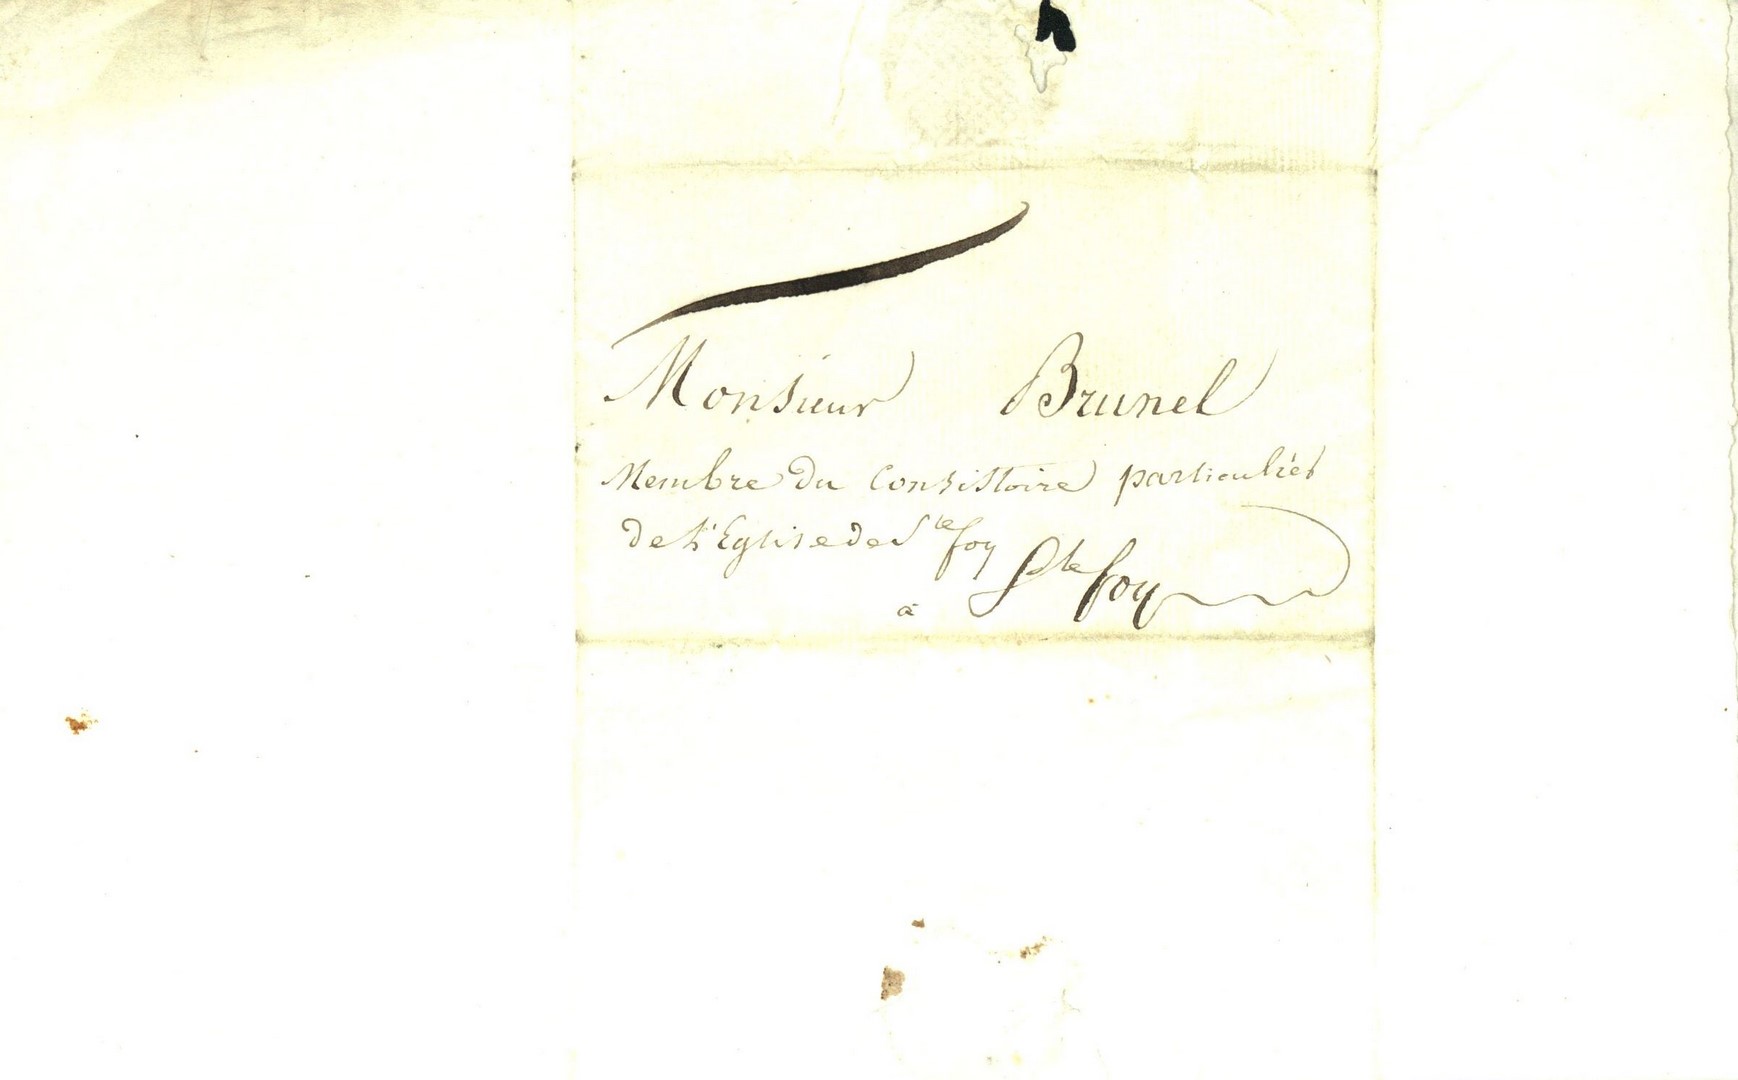 Monsieur Brunel
Membre du Consistoire particulier
de l'Eglise de Ste foy
à Ste foy